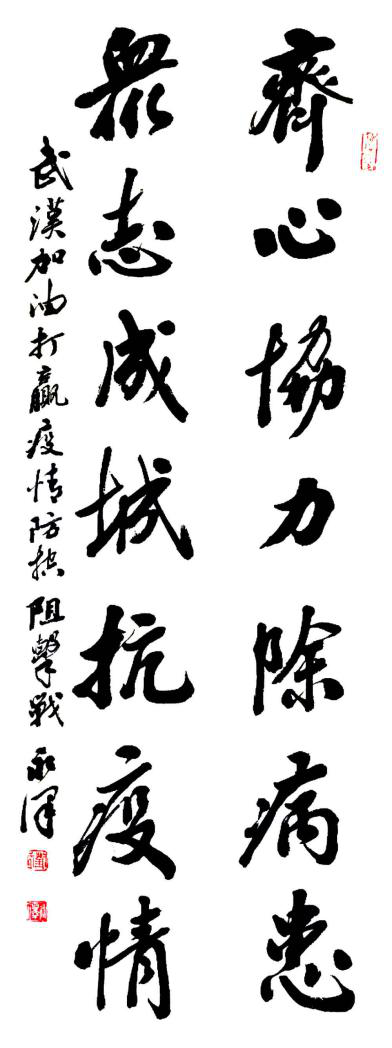 齊心協力除病患
眾志成城抗疫情
武漢加油打贏疫情防控阻擊戰 永澤